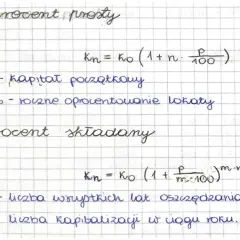 rocent prosty
Kn = K0 (1 + n · p/100)
- kapitał początkowy
- roczne oprocentowanie lokaty
ocent składany
Kn = K0 (1 + p/m·100)^m·n
- liczba wszystkich lat oszczędzania
liczba kapitalizacji w ciągu roku.